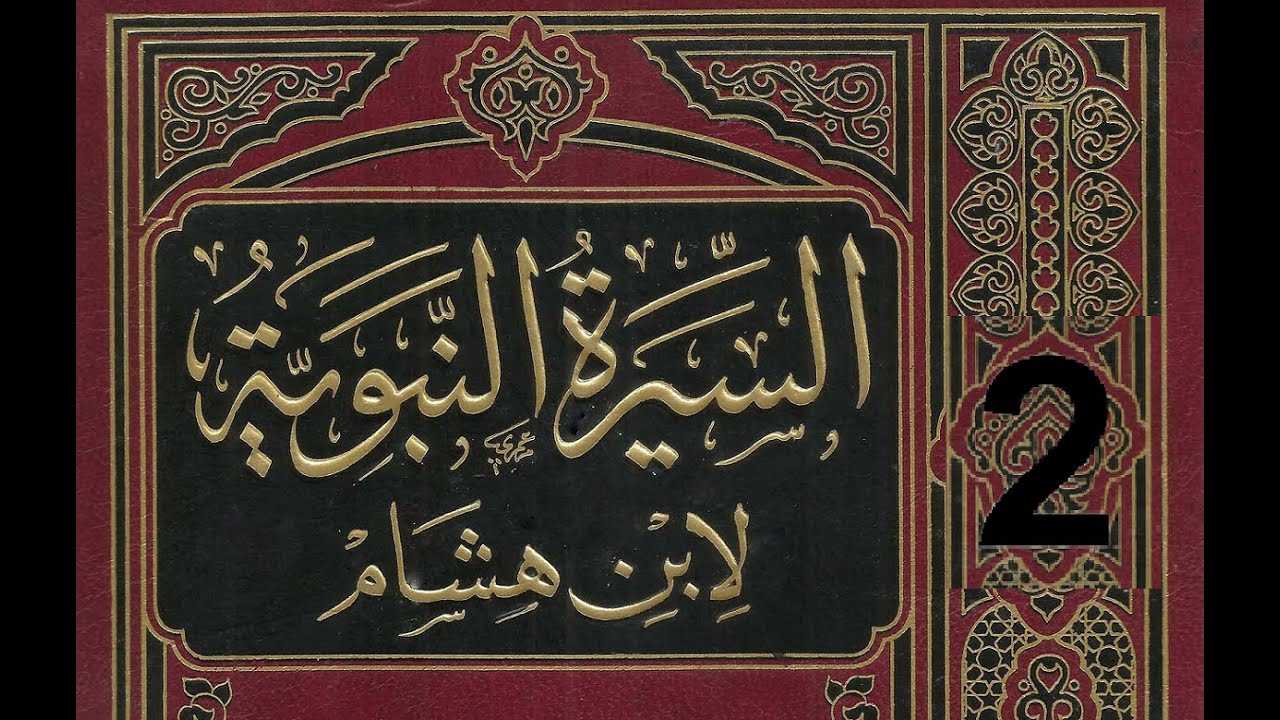 السِّيرَةُ النَّبَوِيَّةُ
لِابْنِ هِشَامٍ
2